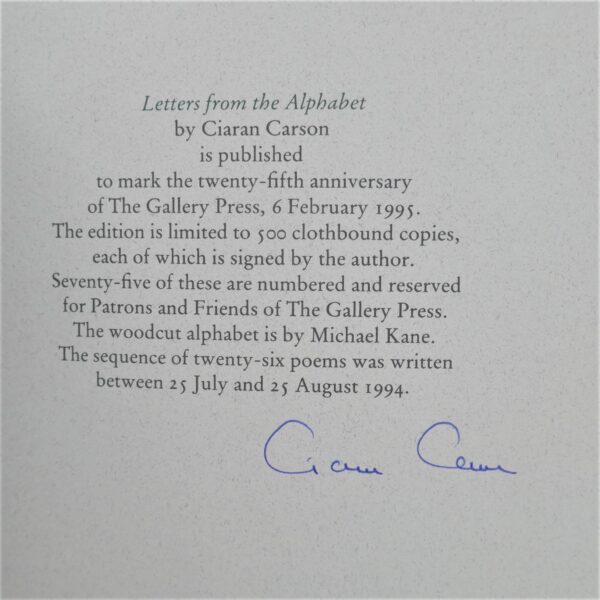 Letters from the Alphabet
by Ciaran Carson
is published
to mark the twenty-fifth anniversary
of The Gallery Press, 6 February 1995.
The edition is limited to 500 clothbound copies,
each of which is signed by the author.
Seventy-five of these are numbered and reserved
for Patrons and Friends of The Gallery Press.
The woodcut alphabet is by Michael Kane.
The sequence of twenty-six poems was written
between 25 July and 25 August 1994.
Ciaran Carson